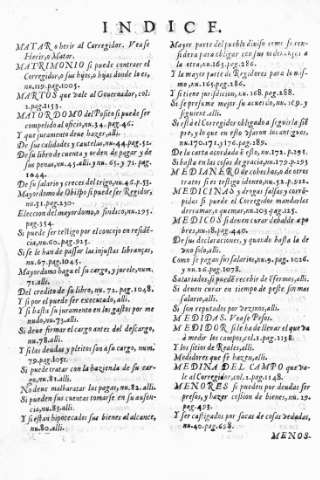 INDICE.
MATAR o herir al Corregidor. Vease
Herir, o Matar.
MATRIMONIO si puede contraer el
Corregidor, o sus hijos, o hijas donde lo es,
nu.119.pag.1005.
MARTOS que vale al Gouernador, col.
2.pag.1153.
MAYORDOMO del Posito si puede ser
compelido al oficio, nu.34. pag.46.
Y que juramento deue hazer, alli.
De sus calidades y cautelas, nu.44.pag.52.
De su libro de cuenta y orden de pagar y
sus penas, nu.45.alli. y nu. 65. y 71. pag.
1044.
De su salario y creces del trigo, nu.46.p.53.
Mayordomo de Obispo si puede ser Regidor,
nu.31.pag.230.
Eleccion del mayordomo, o sindico, nu.195.
pag.354.
Si puede ser testigo por el concejo en residẽ-
cia, nu.60. pag.925.
Si se le han de passar las injustas libranças,
nu.67.pag.1043.
Mayordomo haga el su cargo, y jurelo, num.
71.alli.
Del credito de su libro, nu. 72. pag.1048.
Y si por el puede ser executado, alli.
Y si basta su juramento en los gastos por me
nudo, nu.73.alli.
Si deue firmar el cargo antes del descargo,
nu.78.alli.
Y si las deudas y pleitos son a su cargo, num.
79.pag.1051.
Si puede tratar con la hazienda de su car-
go, nu.81.alli.
No deue malbaratar los pagos, nu.82. alli.
Si pueden sus cuentas tomarse en su ausen-
cia, nu.83. alli.
Y si estan hipotecados sus bienes al alcance,
nu.80.alli.
Mayor parte del pueblo diviso como se con-
sidera para obligar con sus votos a la
otra, nu.163.pag.286.
Y la mayor parte de Regidores para lo mis-
mo, nu.165.pag.286.
Y si tiene jurisdicion, nu.168.pag.288.
Si se presume mejor su acuerdo, nu.169. y
siguient.alli.
Si està el Corregidor obligado a seguirla siẽ
pre, y lo que en esto usaron los antiguos,
nu.170.171.y 176.pag.289.
De la carta acordada à esto, nu.172.p.291.
Si basta en los casos de gracia, nu.179.p.293
MEDIANERO de cohechos, o de otros
tratos si es testigo idoneo, nu.52.p.921.
MEDICINAS y drogas falsas y corrõ-
pidas si puede el Corregidor mandarlas
derramar, o quemar, nu.103.pag.125.
MEDICOS si deuen curar debalde a po
bres, nu.28.pag.440.
De sus declaraciones, y quando basta la de
uno solo, alli.
Como se pagan sus salarios, nu.9. pag. 1026.
y nu.26.pag.1078.
Salariados si puedẽ recebir de ẽfermos, alli.
Si deuen curar en tiempo de peste sin mas
salario, alli.
Si son reputados por vezinos, alli.
MEDIDAS. Vease Pesos.
MEDIDOR si le ha de lleuar el que va
à medir los campos, col.1.pag.1158.
Y los sitios de Reales, alli.
Medidores que se hazen, alli.
MEDINA DEL CAMPO que va-
le al Corregidor, col.2.pag.1148.
MENORES si pueden por deudas ser
presos, y hazer cession de bienes, nu.29.
pag.493.
Y ser castigados por sacas de cosas vedadas,
nu.40.pag.698.
MENOS.